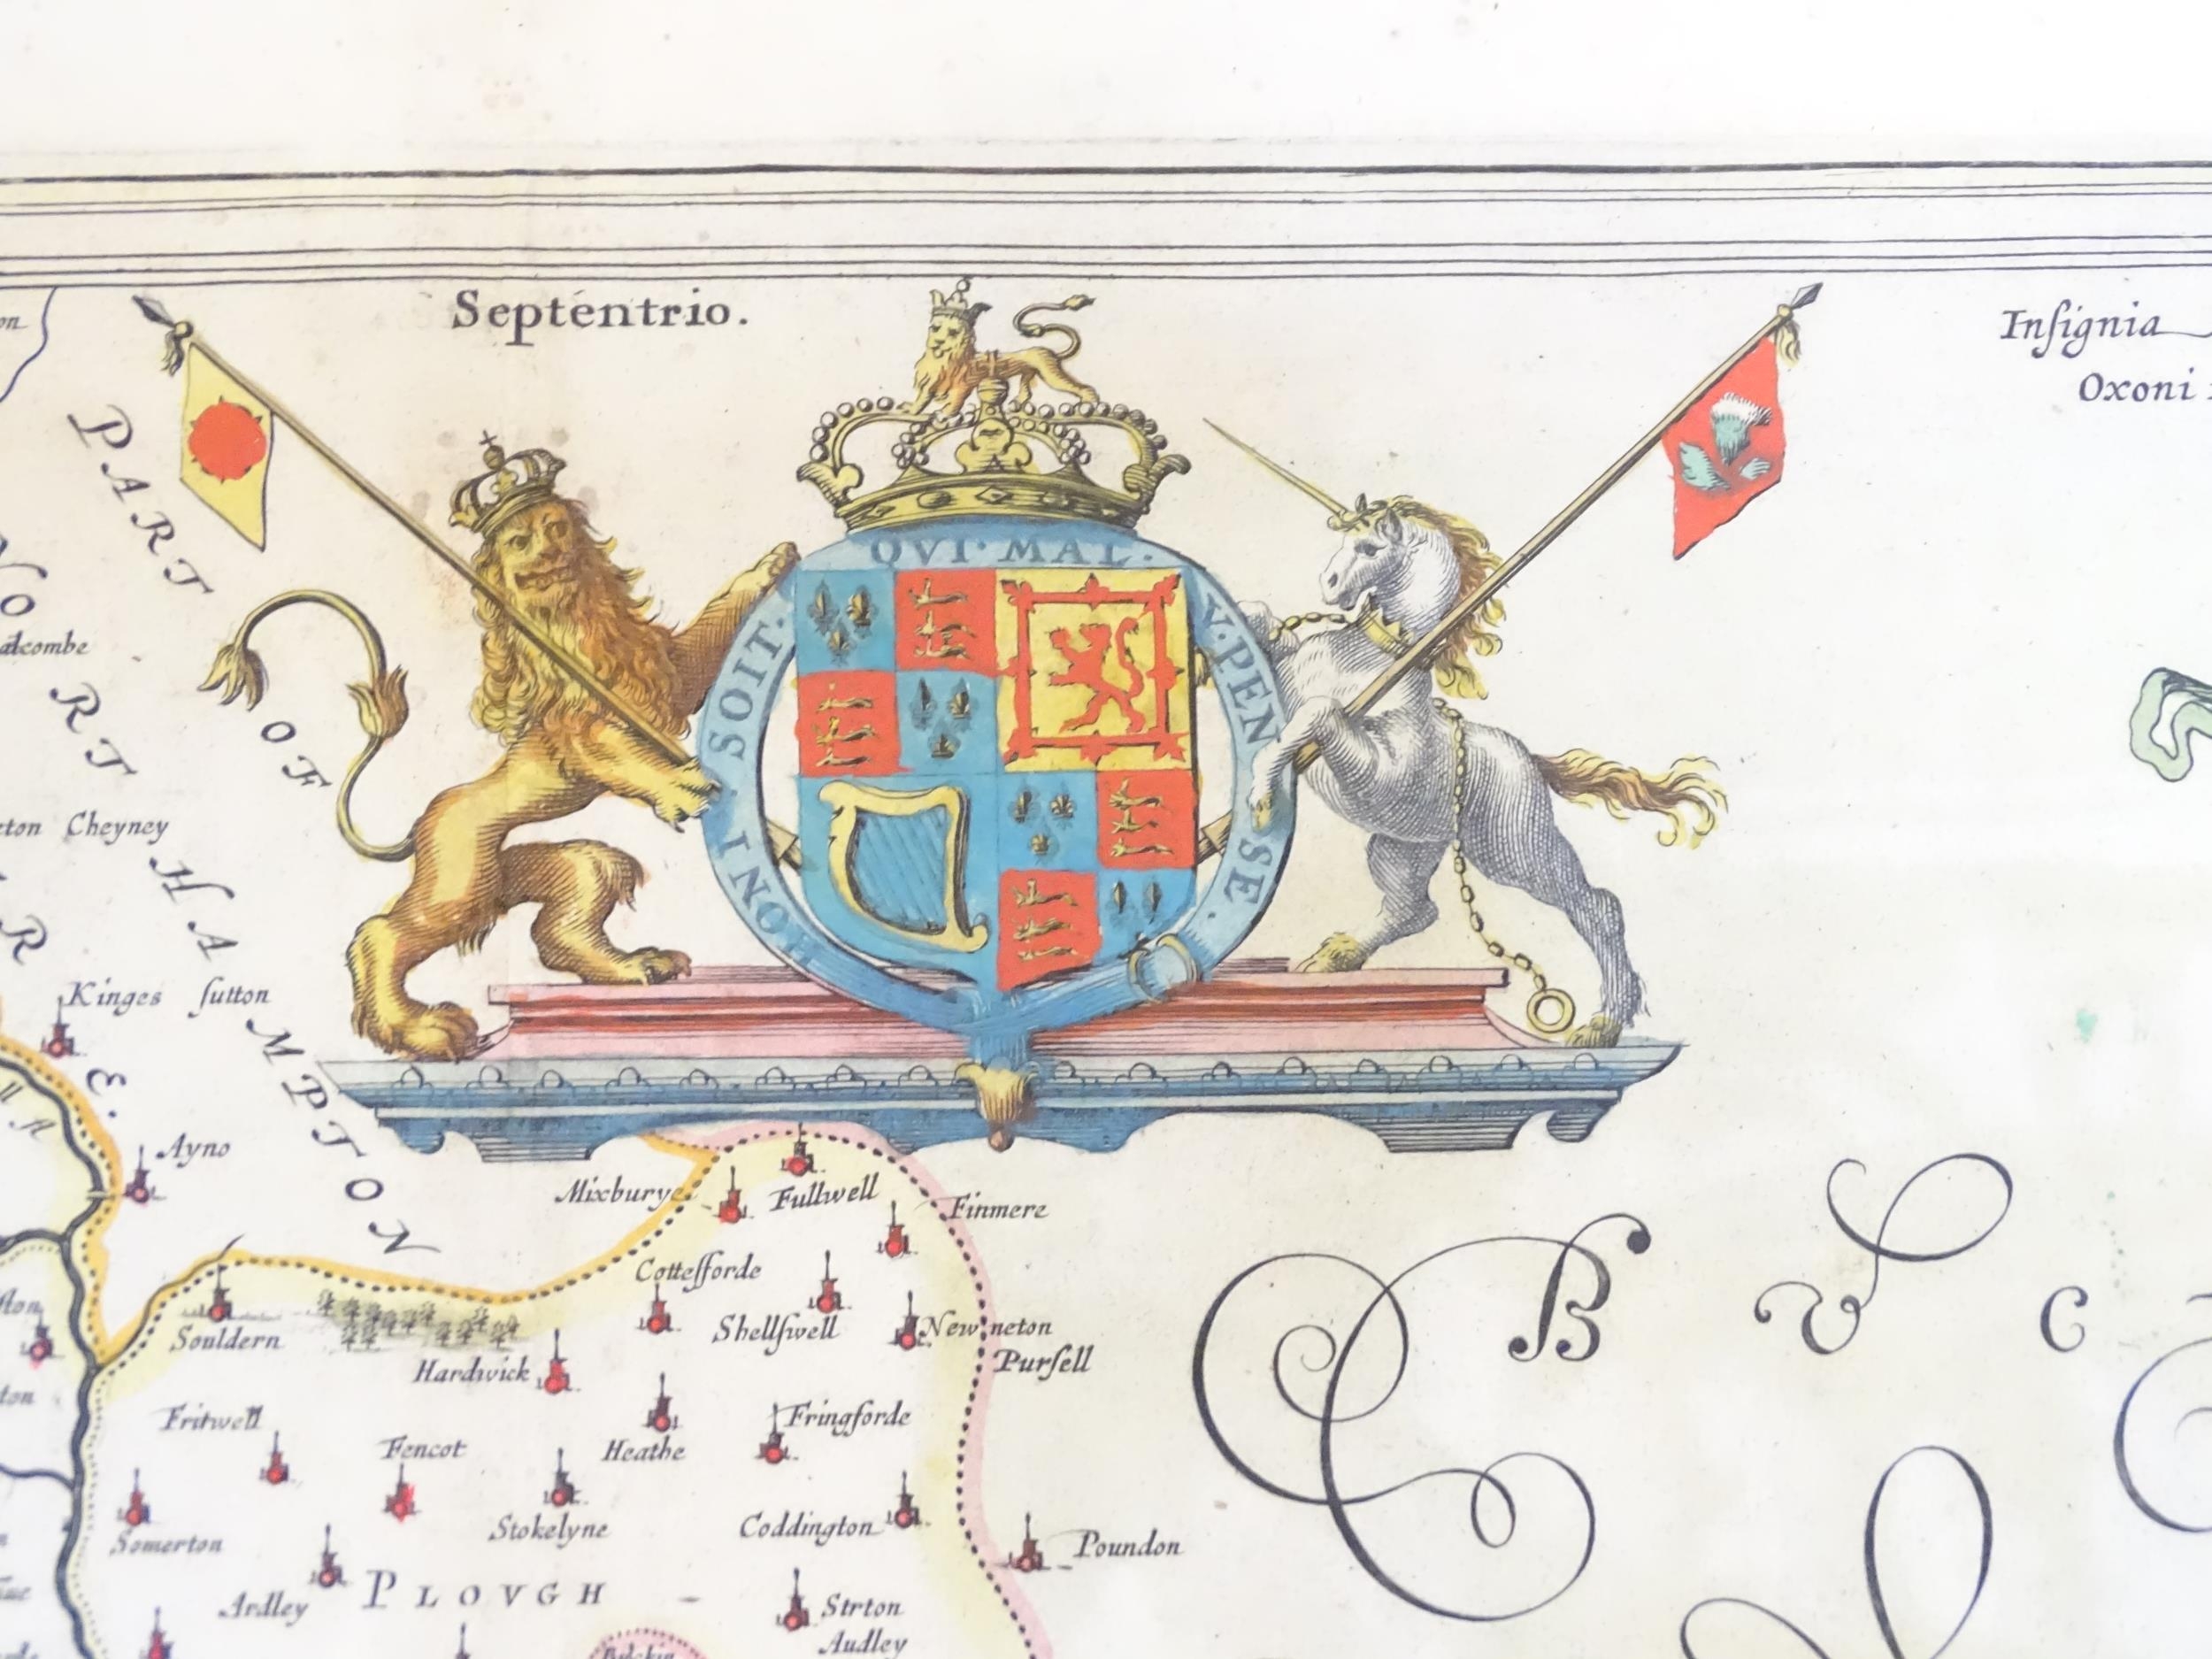 Septentrio.
Insignia
Oxoni
PART OF
NORT
HAMPTON
QVI· MAL·
Y·PEN
SE·
I SOIT·
HONI
Cheyney
Kinges sutton
Ayno
Mixburye
Fullwell
Finmere
Cottesforde
Shellswell
Newneton
Pursell
Souldern
Hardwick
Fritwell
Fencot
Heathe
Fringforde
Somerton
Stokelyne
Coddington
Poundon
Ardley
PLOVGH -
Strton
Audley
B v c